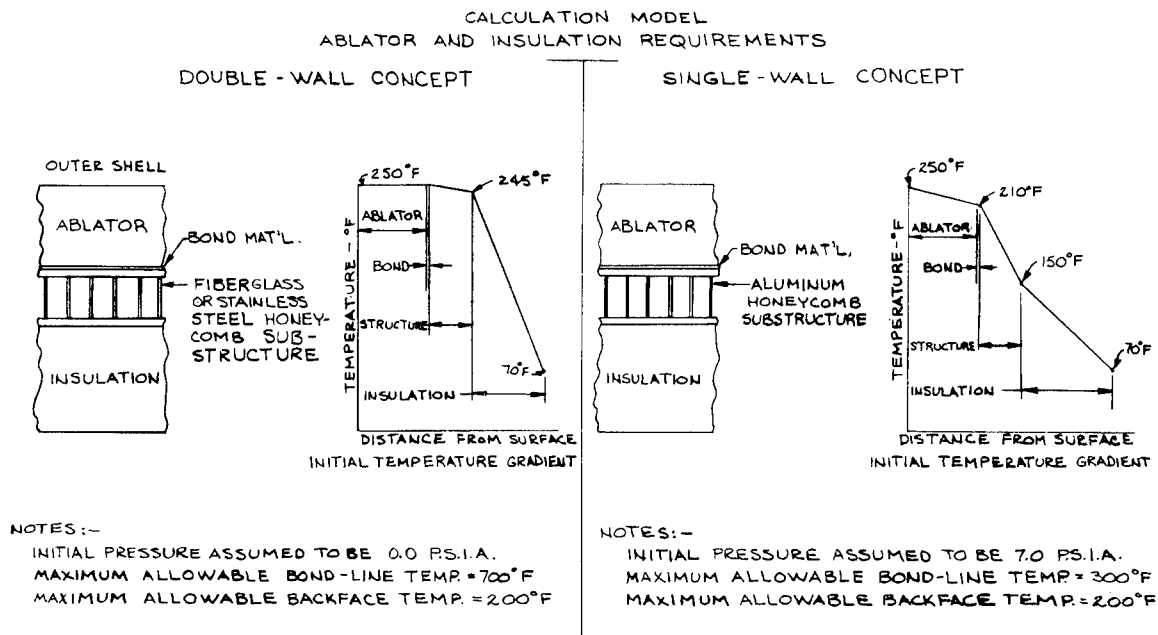 CALCULATION MODEL
ABLATOR AND INSULATION REQUIREMENTS
DOUBLE-WALL CONCEPT
OUTER SHELL
ABLATOR
BOND MAT'L.
FIBERGLASS
OR STAINLESS
STEEL HONEY-
COMB SUB-
STRUCTURE
INSULATION
TEMPERATURE-°F
250°F
245°F
ABLATOR
BOND
STRUCTURE
70°F
INSULATION
DISTANCE FROM SURFACE
INITIAL TEMPERATURE GRADIENT
NOTES:-
INITIAL PRESSURE ASSUMED TO BE 0.0 P.S.I.A.
MAXIMUM ALLOWABLE BOND-LINE TEMP.=700°F
MAXIMUM ALLOWABLE BACKFACE TEMP.=200°F
SINGLE-WALL CONCEPT
ABLATOR
BOND MAT'L.
ALUMINUM
HONEYCOMB
SUBSTRUCTURE
INSULATION
TEMPERATURE-°F
250°F
210°F
ABLATOR
BOND
150°F
STRUCTURE
70°F
INSULATION
DISTANCE FROM SURFACE
INITIAL TEMPERATURE GRADIENT
NOTES:-
INITIAL PRESSURE ASSUMED TO BE 7.0 P.S.I.A.
MAXIMUM ALLOWABLE BOND-LINE TEMP.=300°F
MAXIMUM ALLOWABLE BACKFACE TEMP.=200°F